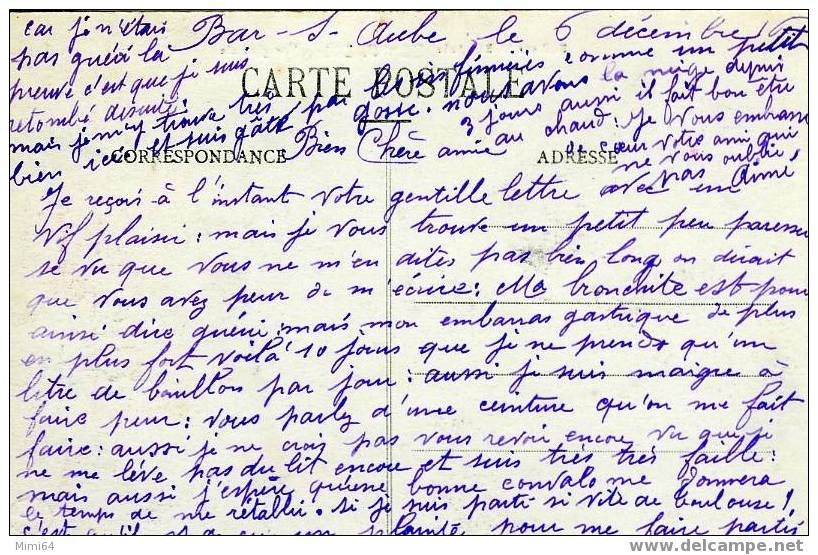 Bar-S-Aube le 6 décembre
CARTE POSTALE
CORRESPONDANCE
ADRESSE
Bien Chère amie
Je reçois à l'instant votre gentille lettre avec un
vif plaisir : mais je vous trouve un petit peu paresseu
se vu que vous ne m'en dites pas bien long on dirait
que vous avez peur de m'écrire : Ma bronchite est pour
ainsi dire guérie : mais mon embarras gastrique de plus
en plus fort voilà 10 jours que je ne prends qu'un
litre de bouillon par jour : aussi je suis maigre à
faire peur : vous parlez d'une ceinture qu'on me fait
faire : aussi je ne crois pas vous revoir encore vu que je
ne me lève pas du lit encore et suis très très faible :
mais aussi j'espère qu'une bonne convalo me donnera
le temps de me rétablir. Si je suis parti si vite de Toulouse !
c'est qu'il pour me faire partir
car je n'étais
pas guéri la
preuve c'est que je suis
retombé desuite :
mais je m'y trouve très
bien ici et suis gâté par
les infirmières comme un petit
gosse. nous avons la neige depuis
3 jours aussi il fait bon être
au chaud : Je vous embrasse
de cœur votre ami qui
ne vous oublie
pas Aimé
Mimi64
http://www.delcampe.net